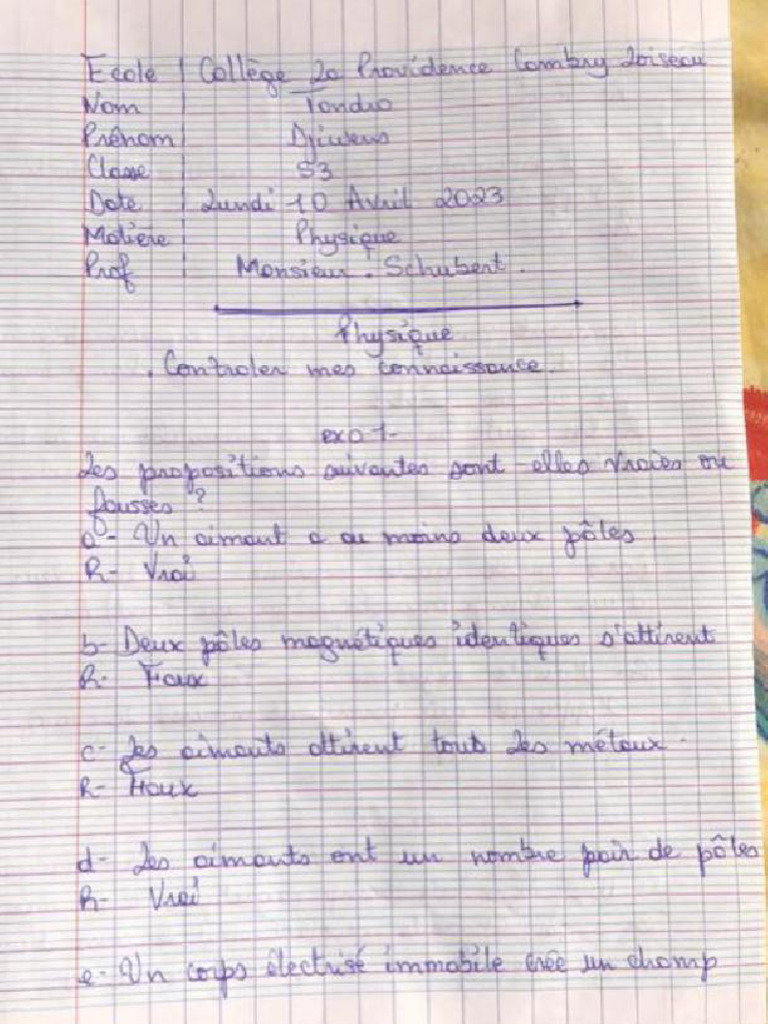 Ecole Collège La Providence Combry Loiseau
Nom Tondro
Prénom Djiwens
Classe S3
Date Lundi 10 Avril 2023
Matière Physique
Prof Monsieur. Schubert.
Physique
. Controler mes connaissance.
exo 1-
Les propositions suivantes sont-elles vraies ou
fausses ?
a- Un aimant a au moins deux pôles
R- Vrai
b- Deux pôles magnétiques identiques s'attirent
R- Faux
c- Les aimants attirent touts les métaux.
R- Faux
d- Les aimants ont un nombre pair de pôles
R- Vrai
e- Un corps électrisé immobile crée un champ